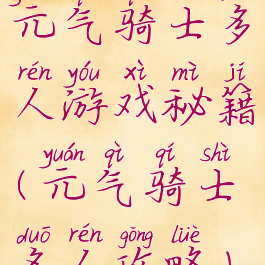 元气骑士多
rén yóu xì mì jí
人游戏秘籍
yuán qì qí shì
(元气骑士
duō rén gōng lüè
多人攻略)